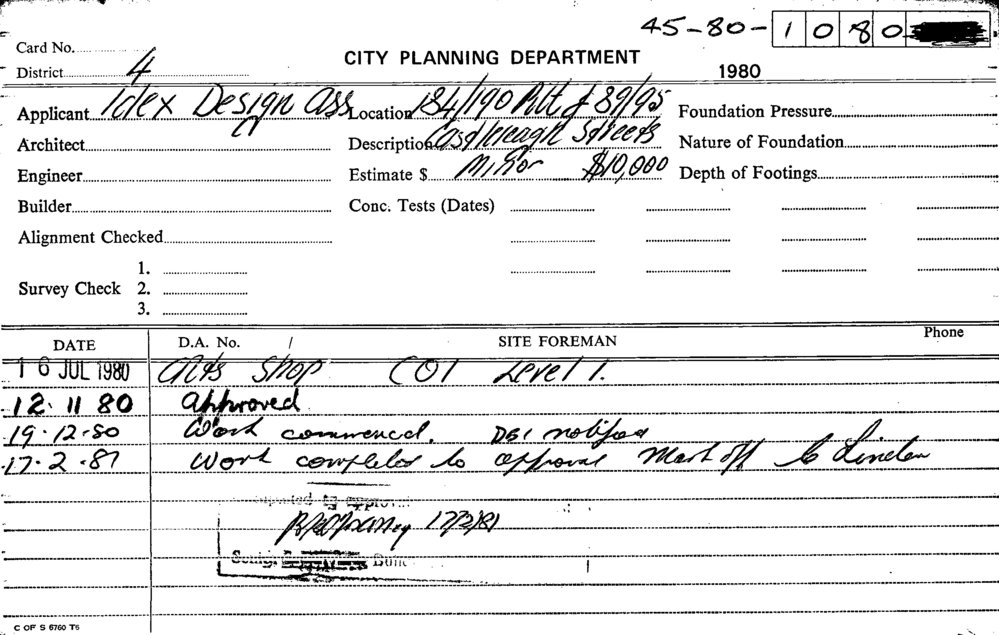 45-80- 1 0 8 0
Card No.
District 4
CITY PLANNING DEPARTMENT
1980
Applicant Idex Design Ass Location 184/190 Pitt & 89/95 Foundation Pressure
Architect Description Castlereagh Streets Nature of Foundation
Engineer Estimate $ Minor $10,000 Depth of Footings
Builder Conc. Tests (Dates)
Alignment Checked
1.
Survey Check 2.
3.
DATE D.A. No. / SITE FOREMAN Phone
16 JUL 1980 Alts Shop CO1 Level 1.
12. 11 80 Approved
19.12.80 Work commenced. DBI notified
17.2.81 Work completed to approval Mark off
17/2/81
C OF S 6760 T6